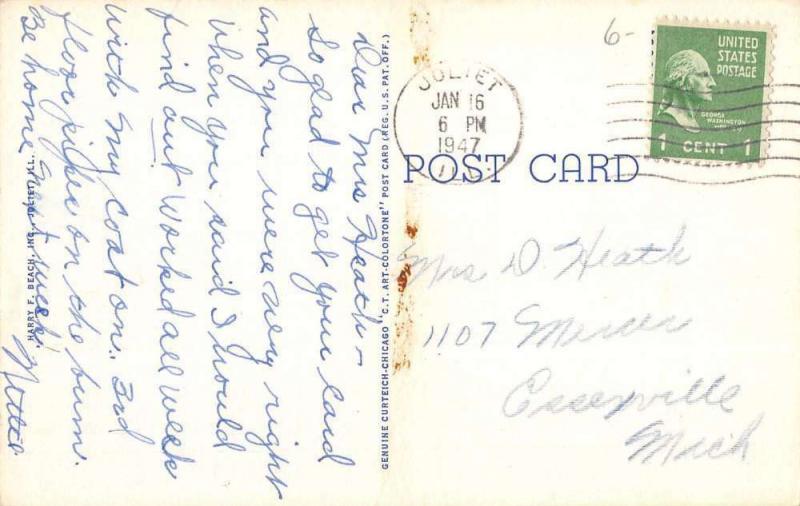 Dear Mrs Heath -
So glad to get your card
and you were very right
When you said I would
find out. Worked all week
with my coat on. 3rd
floor pipes on the bum.
Be home next week!
HARRY F. BEACH, INC., JOLIET, ILL.
GENUINE CURTEICH-CHICAGO "C.T. ART-COLORTONE" POST CARD (REG. U.S. PAT. OFF.)
6-
JOLIET
JAN 16
6 PM
1947
ILL.
UNITED
STATES
POSTAGE
GEORGE
WASHINGTON
1 CENT 1
POST CARD
Mrs D. Heath
1107 Mercer
Essexville
Mich